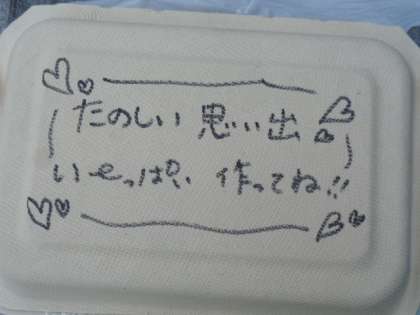 たのしい思い出
いーっぱい作ってね!!